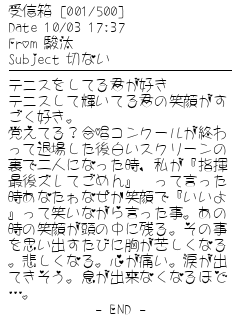 受信箱 [001/500]
Date 10/03 17:37
From 駿汰
Subject 切ない
テニスをしてる君が好き
テニスして輝いてる君の笑顔がす
ごく好き。
覚えてる？合唱コンクールが終わ
って退場した後白いスクリーンの
裏で二人になった時、私が『指揮
最後ズしてごめん』 って言った
時あなたわなぜか笑顔で『いいよ
』って笑いながら言った事。あの
時の笑顔が頭の中に残る。その事
を思い出すたびに胸が苦しくなる
。悲しくなる。心が痛い。涙が出
てきそう。息が出来なくなるほど
…。
- END -